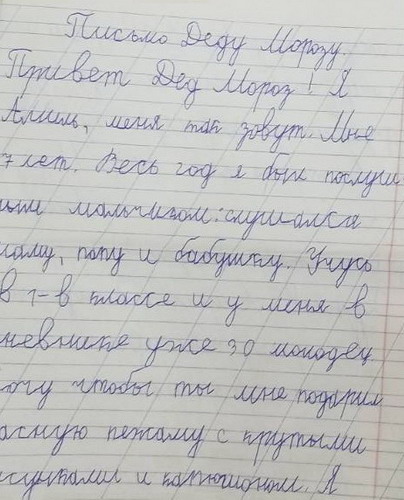 Письмо Деду Морозу
Привет Дед Мороз! Я
Алиль, меня так зовут. Мне
7 лет. Весь год я был послуш
ным мальчизом: слушался
маму, папу и бабушку. Учусь
в 1-в классе и у меня в
невнике уже 30 молодец
хочу чтобы ты мне подарил
асную пежаму с крутыми
сунками и капюшоном. Я